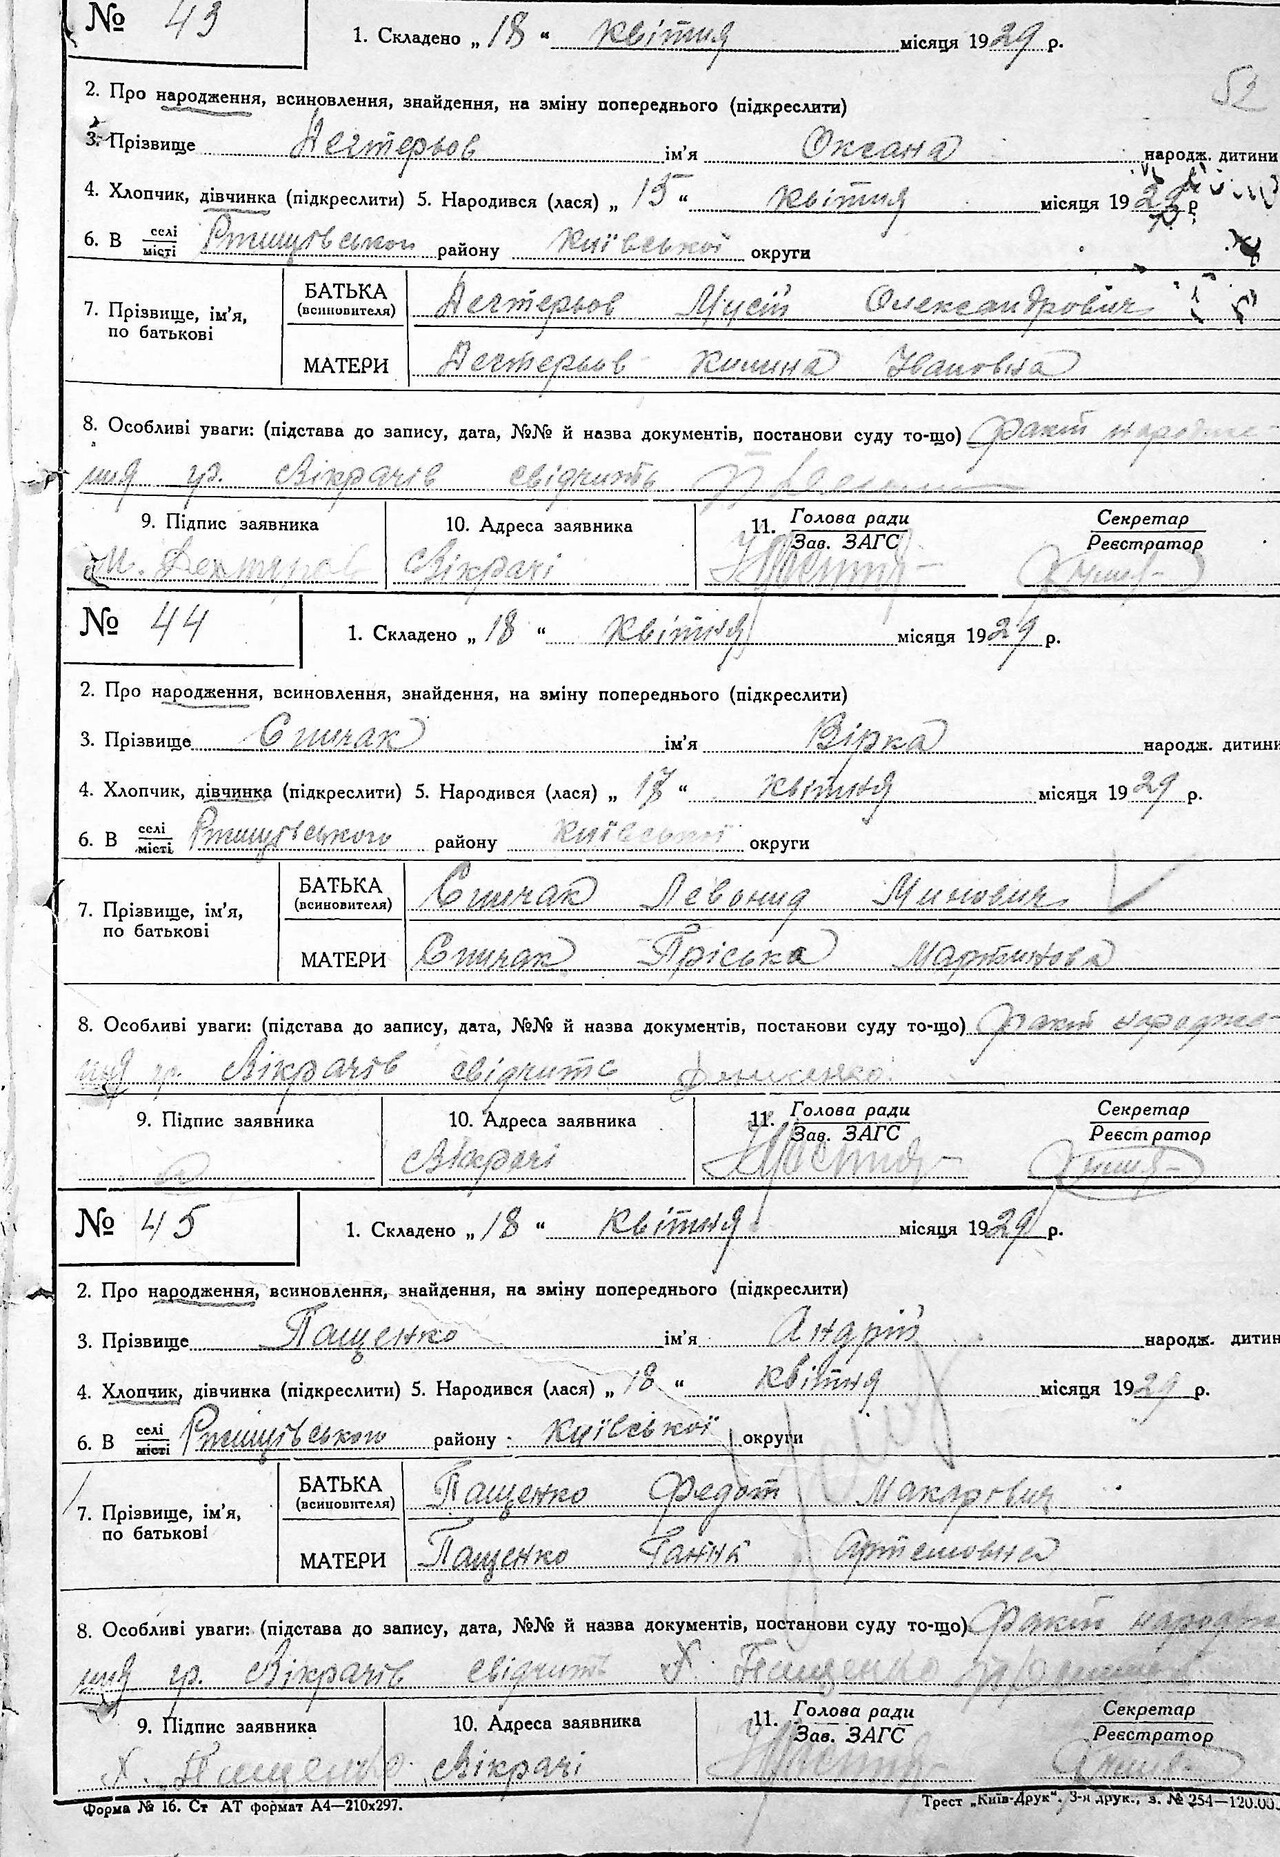 № 43
1. Складено „ 18 “ квітня місяця 1929 р.
52
2. Про народження, всиновлення, знайдення, на зміну попереднього (підкреслити)
3. Прізвище Дегтерьов ім'я Оксана народж. дитини
4. Хлопчик, дівчинка (підкреслити) 5. Народився (лася) „ 15 “ квітня місяця 1929 р
6. В селі місті Ржищівськог району Київської округи
7. Прізвище, ім'я, по батькові
БАТЬКА (всиновителя) Дегтерьов Мусій Олександрович
МАТЕРИ Дегтерьов Килина Івановна
8. Особливі уваги: (підстава до запису, дата, №№ й назва документів, постанови суду то-що) Факт народже-
ння гр. Вікрачів свідчить
9. Підпис заявника
10. Адреса заявника
11. Голова ради Зав. ЗАГС
Секретар Реєстратор
Вікрачі
№ 44
1. Складено „ 18 “ квітня місяця 1929 р.
2. Про народження, всиновлення, знайдення, на зміну попереднього (підкреслити)
3. Прізвище Спичак ім'я Вірка народж. дитини
4. Хлопчик, дівчинка (підкреслити) 5. Народився (лася) „ 17 “ квітня місяця 1929 р.
6. В селі місті Ржищівського району Київської округи
7. Прізвище, ім'я, по батькові
БАТЬКА (всиновителя) Спичак Левонид Минович
МАТЕРИ Спичак Пріська Мартинова
8. Особливі уваги: (підстава до запису, дата, №№ й назва документів, постакови суду то-що) Факт народже-
ння гр. Вікрачів свідчить Денисенко
9. Підпис заявника
10. Адреса заявника
11. Голова ради Зав. ЗАГС
Секретар Реєстратор
Вікрачі
№ 45
1. Складено „ 18 “ квітня місяця 1929 р.
2. Про народження, всиновлення, знайдення, на зміну попереднього (підкреслити)
3. Прізвище Пащенко ім'я Андрій народж. дитин
4. Хлопчик, дівчинка (підкреслити) 5. Народився (лася) „ 18 “ квітня місяця 1929 р.
6. В селі місті Ржищівського району Київської округи
7. Прізвище, ім'я, по батькові
БАТЬКА (всиновителя) Пащенко Федот Макарович
МАТЕРИ Пащенко Ганна Артемовна
8. Особливі уваги: (підстава до запису, дата, №№ й назва документів, постанови суду то-що) Факт народже
ння гр. Вікрачів свідчить Х. Пащенко
9. Підпис заявника
10. Адреса заявника
11. Голова ради Зав. ЗАГС
Секретар Реєстратор
Х. Пащенко Вікрачі
Форма № 16. Ст АТ формат А4—210х297.
Трест „Київ-Друк“. 3-я друк., з. № 254—120.00